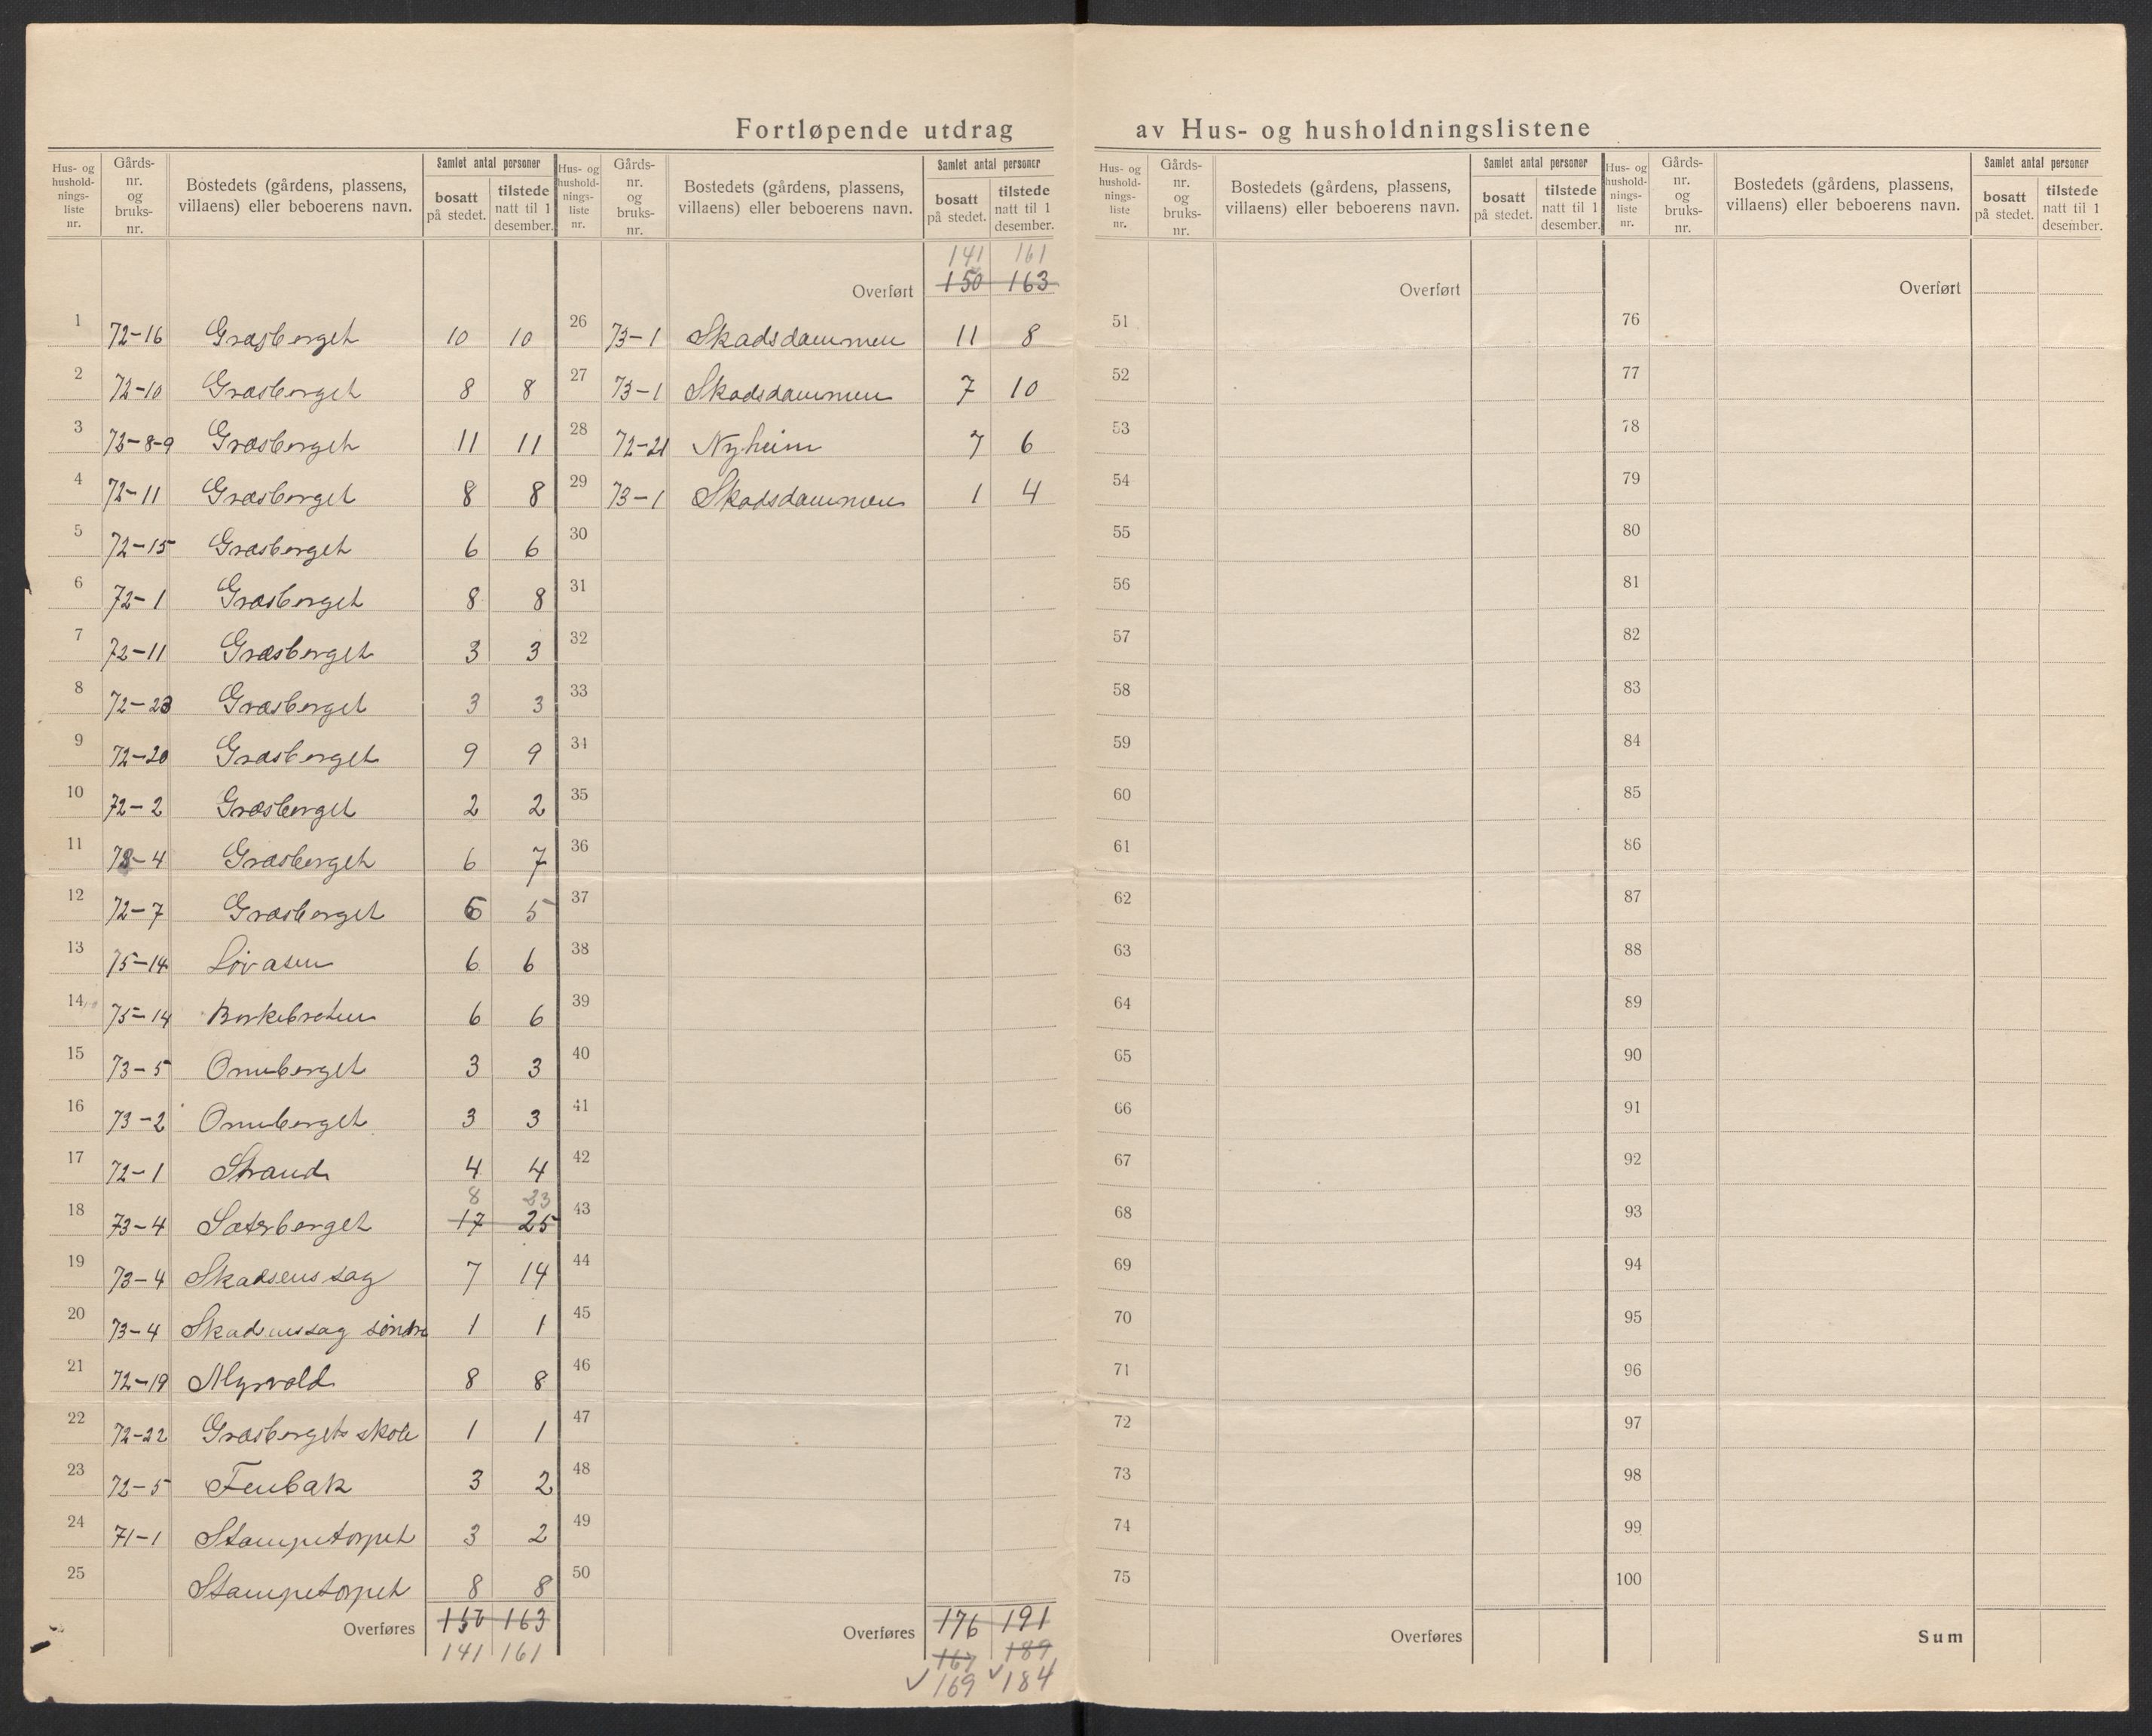 Fortløpende utdrag av Hus- og husholdningslistene
Hus- og hushold- nings- liste nr. Gårds- nr. og bruks- nr. Bostedets (gårdens, plassens, villaens) eller beboerens navn. Samlet antal personer bosatt på stedet. tilstede natt til 1 desember.
1 72-16 Græsberget 10 10
2 72-10 Græsberget 8 8
3 72-8-9 Græsberget 11 11
4 72-11 Græsberget 8 8
5 72-15 Græsberget 6 6
6 72-1 Græsberget 8 8
7 72-11 Græsberget 3 3
8 72-23 Græsberget 3 3
9 72-20 Græsberget 9 9
10 72-2 Græsberget 2 2
11 72-4 Græsberget 6 7
12 72-7 Græsberget 6 5
13 75-14 Løvasen 6 6
14 75-14 Borkebraten 6 6
15 73-5 Orreberget 3 3
16 73-2 Orreberget 3 3
17 72-1 Strand 4 4
8 23
18 73-4 Sæterberget 17 25
19 73-4 Skadsens sag 7 14
20 73-4 Skadsenssag søndre 1 1
21 72-19 Myrvold 8 8
22 72-22 Græsbergets skole 1 1
23 72-5 Fenbak 3 2
24 71-1 Stampetorpet 3 2
25 Stampetorpet 8 8
Overføres 150 163
141 161
Hus- og hushold- nings- liste nr. Gårds- nr. og bruks- nr. Bostedets (gårdens, plassens, villaens) eller beboerens navn. Samlet antal personer bosatt på stedet. tilstede natt til 1 desember.
141 161
Overført 150 163
26 73-1 Skadsdammen 11 8
27 73-1 Skadsdammen 7 10
28 72-21 Nyheim 7 6
29 73-1 Skadsdammen 1 4
30
31
32
33
34
35
36
37
38
39
40
41
42
43
44
45
46
47
48
49
50
Overføres 176 191
167 189
✓169 ✓184
Hus- og hushold- nings- liste nr. Gårds- nr. og bruks- nr. Bostedets (gårdens, plassens, villaens) eller beboerens navn. Samlet antal personer bosatt på stedet. tilstede natt til 1 desember.
Overført
51
52
53
54
55
56
57
58
59
60
61
62
63
64
65
66
67
68
69
70
71
72
73
74
75
Overføres
Hus- og hushold- nings- liste nr. Gårds- nr. og bruks- nr. Bostedets (gårdens, plassens, villaens) eller beboerens navn. Samlet antal personer bosatt på stedet. tilstede natt til 1 desember.
Overført
76
77
78
79
80
81
82
83
84
85
86
87
88
89
90
91
92
93
94
95
96
97
98
99
100
Sum